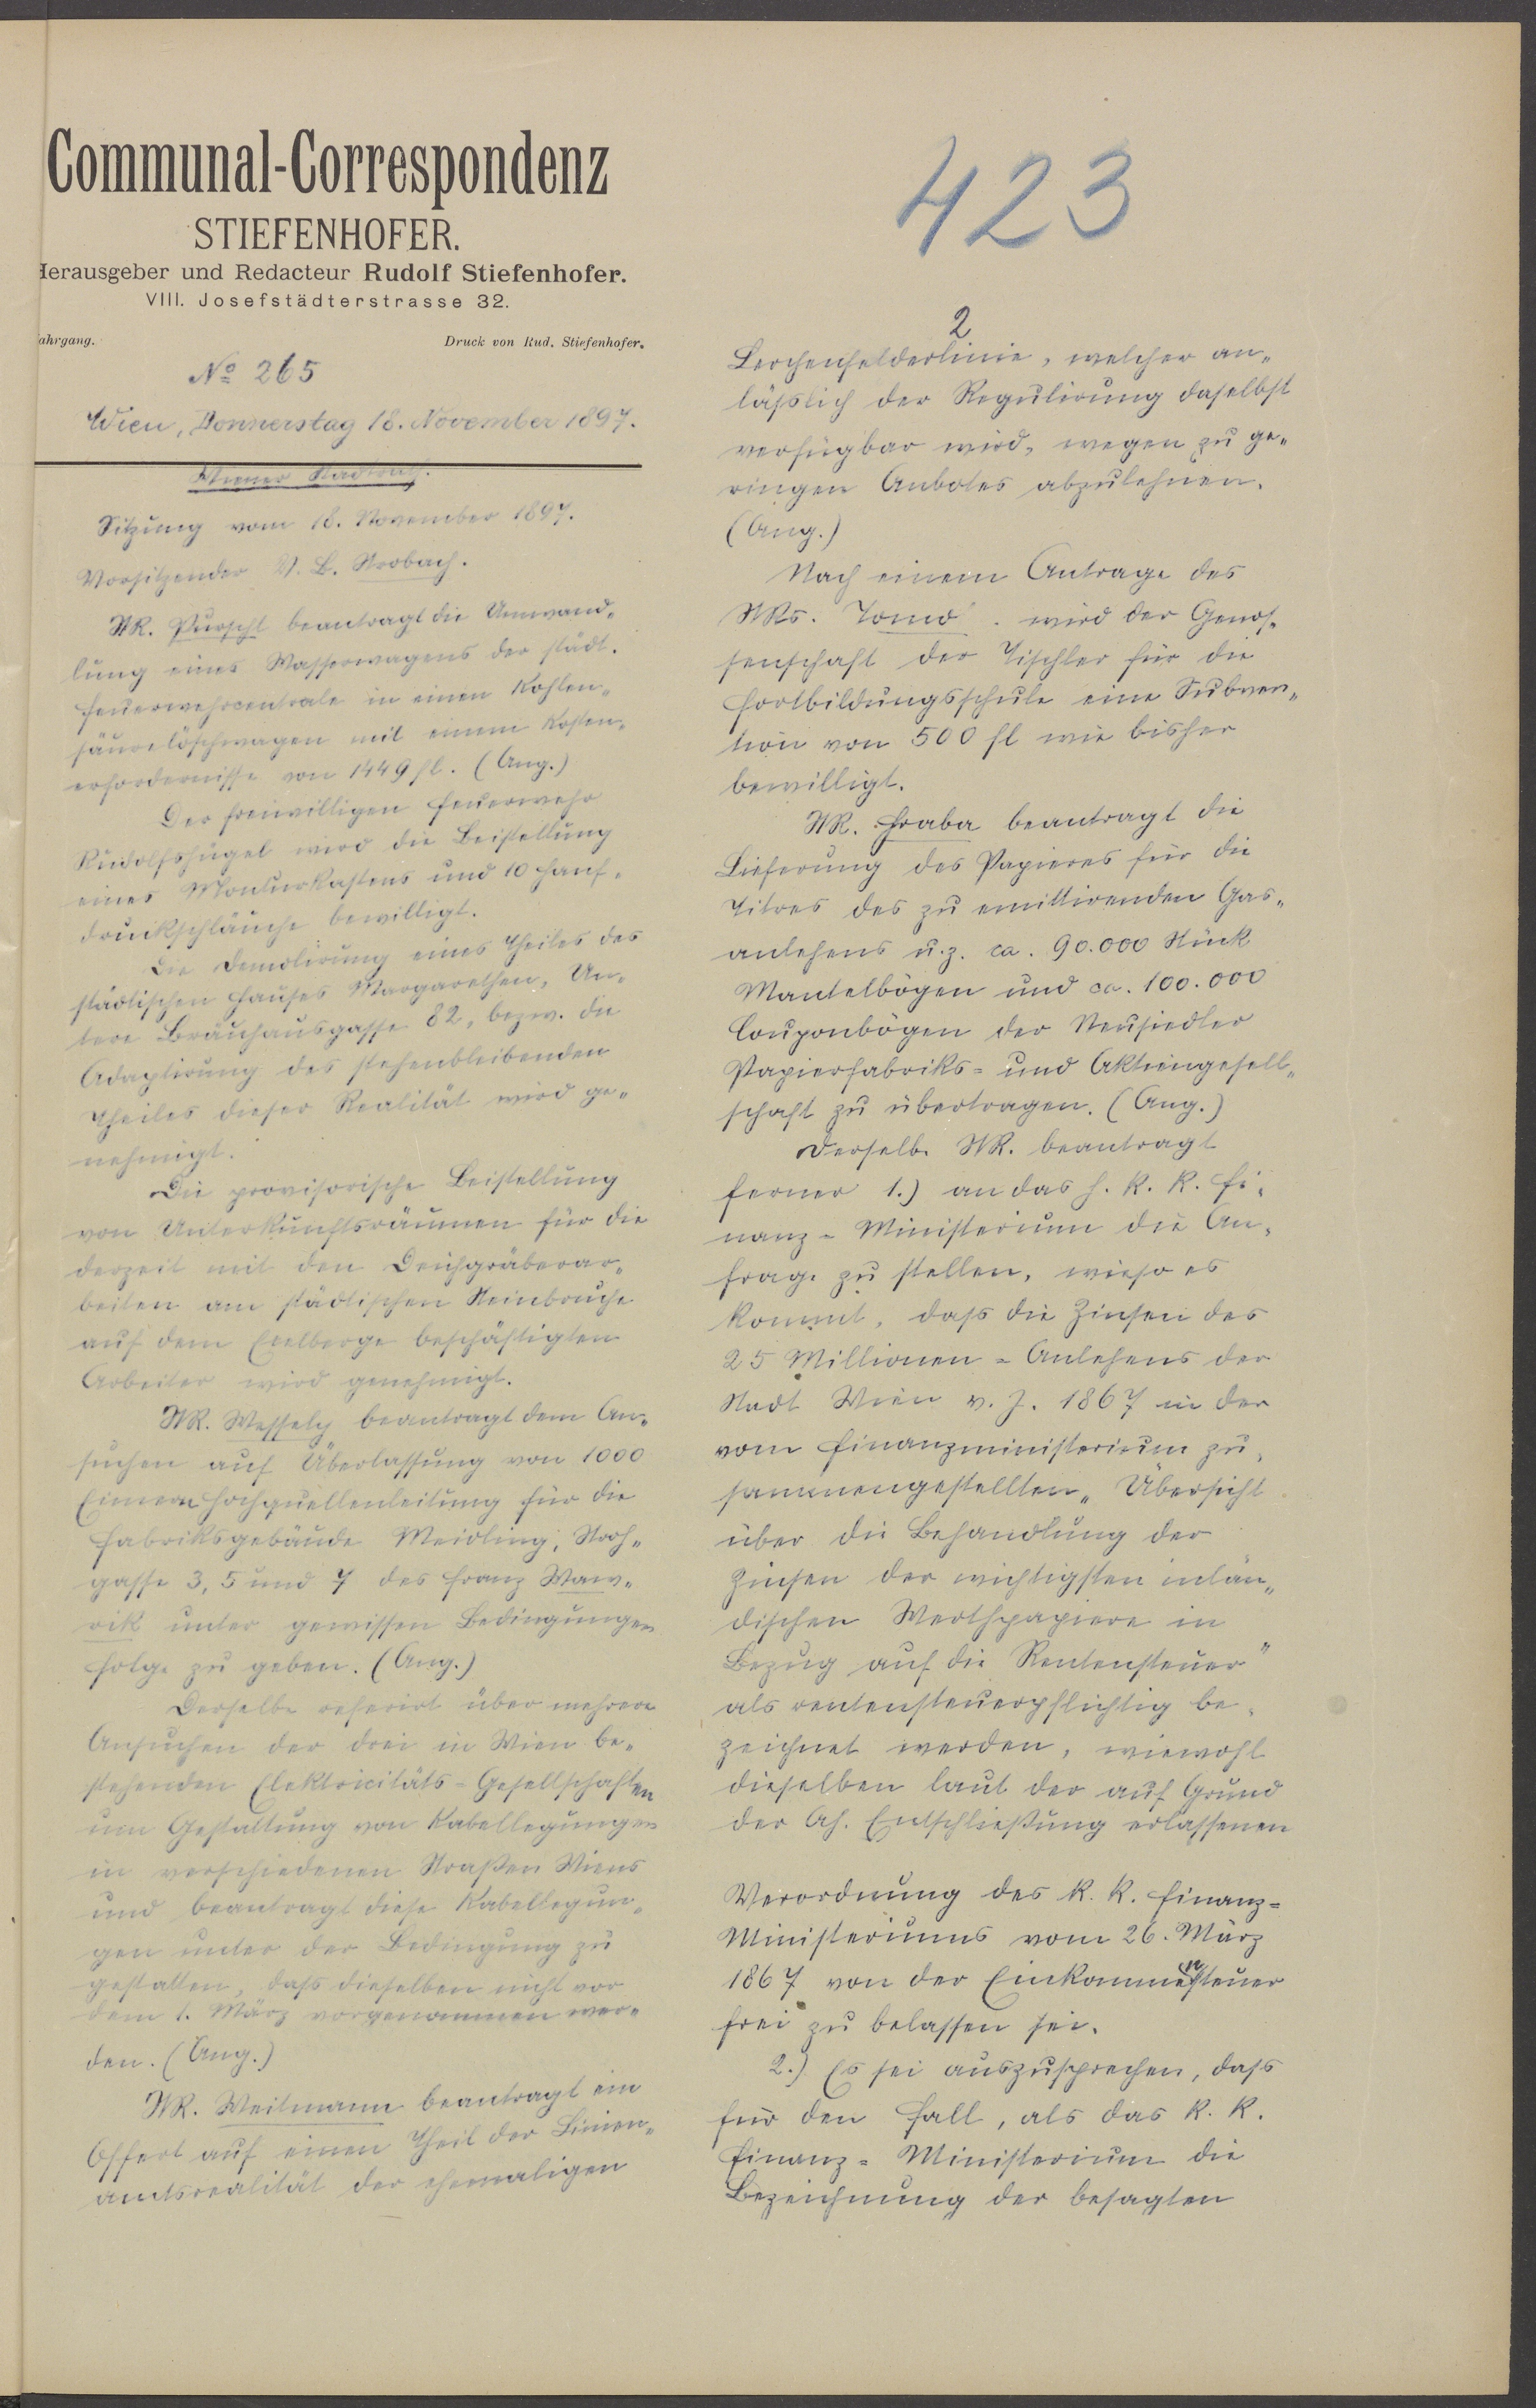 Communal-Correspondenz
STIEFENHOFER.
Herausgeber und Redacteur Rudolf Stiefenhofer.
VIII. Josefstädterstrasse 32.
ahrgang. Druck von Rud. Stiefenhofer.
No 265
Wien, Donnerstag 18. November 1897.
Wiener Stadtrath.
Sitzung vom 18. November 1897.
Vorsitzender V. B. Strobach.
StR. Purscht beantragt die Umwand-
lung eines Wasserwagens der städt.
Feuerwehrcentrale in einen Kohlen-
säurelöschwagen mit einem Kosten-
erfordernisse von 1449 fl. (Ang.)
Der freiwilligen Feuerwehr
Rudolfshügel wird die Beistellung
eines Monturkastens und 10 Hanf-
druckschläuche bewilligt.
Die Demolirung eines Theiles des
städtischen Hauses Margarethen, Un-
tere Bräuhausgasse 82, bezw. die
Adaptirung des stehenbleibenden
Theiles dieser Realität wird ge-
nehmigt.
Die provisorische Beistellung
von Unterkunftsräumen für die
derzeit mit den Deichgräberar-
beiten am städtischen Steinbruche
auf dem Exelberge beschäftigten
Arbeiter wird genehmigt.
StR. Wessely beantragt dem An-
suchen auf Überlassung von 1000
Eimern Hochquellenleitung für die
Fabriksgebäude Meidling, Stroh-
gasse 3, 5 und 7 des Franz Waw-
rik unter gewissen Bedingungen
Folge zu geben. (Ang.)
Derselbe referirt über mehrere
Ansuchen der drei in Wien be-
stehenden Elektricitäts-Gesellschaften
um Gestattung von Kabellegungen
in verschiedenen Straßen Wiens
und beantragt diese Kabellegun-
gen unter der Bedingung zu
gestatten, dass dieselben nicht vor
dem 1. März vorgenommen wer-
den. (Ang.)
StR. Weitmann beantragt ein
Offert auf einen Theil der Linien-
amtsrealität der ehemaligen
423
2
Lerchenfelderlinie, welcher an-
lässlich der Regulirung daselbst
verfügbar wird, wegen zu ge-
ringen Anbotes abzulehnen.
(Ang.)
Nach einem Antrage des
StRs. Tomo . wird der Genos-
senschaft der Tischler für die
Fortbildungsschule eine Subven-
tion von 500 fl wie bisher
bewilligt.
StR. Hraba beantragt die
Lieferung des Papieres für die
Titres des zu emittirenden Gas-
anlehens u. z. ca. 90.000 Stück
Mantelbögen und ca. 100.000
Couponbögen der Neusiedler
Papierfabriks- und Aktiengesell-
schaft zu übertragen. (Ang.)
Derselbe StR. beantragt
ferner 1.) an das h. k. k. Fi-
nanz-Ministerium die An-
frage zu stellen, wieso es
kommt, dass die Zinsen des
25 Millionen-Anlehens der
Stadt Wien v. J. 1867 in der
vom Finanzministerium zu-
sammengestellten „Übersicht
über die Behandlung der
Zinsen der wichtigsten inlän-
dischen Werthpapiere in
Bezug auf die Rentensteuer"
als rentensteuerpflichtig be-
zeichnet werden, wiewohl
dieselben laut der auf Grund
der Ah. Entschließung erlassenen
Verordnung des k. k. Finanz-
Ministeriums vom 26. März
1867 von der Einkommensteuer
frei zu belassen sei.
2.) Es sei auszusprechen, dass
für den Fall, als das k. k.
Finanz-Ministerium die
Bezeichnung der besagten